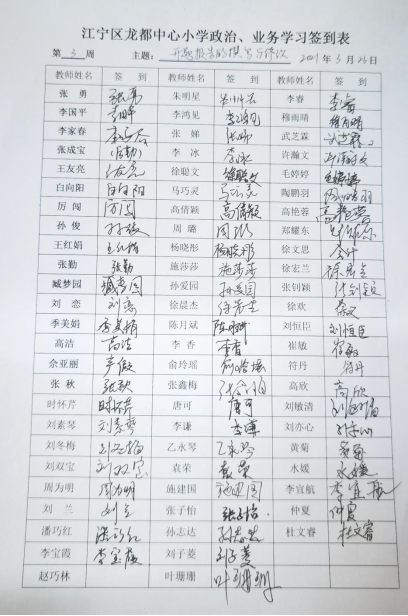 江宁区龙都中心小学政治、业务学习签到表
第 3 周 主题：开题报告的撰写与修改 2021年3月26日
教师姓名 签 到 教师姓名 签 到 教师姓名 签 到
张 勇 张勇 朱明星 李睿 李睿
李国平 李鸿见 穆雨晴 穆雨晴
李家春 张 娣 张娣 武芝霖 武芝霖
张成宝 李 冰 李冰 许瀚文
王友亮 徐聪文 徐聪文 毛婷婷
白向阳 白向阳 马巧灵 马巧灵 陶鹏羽
厉 闻 厉闻 高倩颖 高倩颖 高艳蓉 高艳蓉
孙 俊 孙俊 周 璐 周璐 郑耀东
王红娟 杨晓彤 杨晓彤 徐文思
张勤 张勤 施莎莎 施莎莎 徐宏兰
臧梦园 臧梦园 孙爱园 孙爱园 张钊颖
刘 恋 刘恋 徐晨杰 徐欢
季美娟 季美娟 陈月斌 刘恒臣 刘恒臣
高洁 高洁 李 香 李香 崔敏 崔敏
佘亚丽 俞玲瑶 俞玲瑶 符丹 符丹
张 秋 张秋 张鑫梅 高欣 高欣
时怀芹 时怀芹 唐可 唐可 刘敏清
刘素琴 刘素琴 李谦 李谦 刘亦心
刘冬梅 刘冬梅 乙永琴 乙永琴 黄菊
刘双宝 刘双宝 袁荣 袁荣 水媛 水媛
周为明 周为明 施建国 施建国 李宜航 李宜航
刘 兰 刘兰 张子怡 张子怡 仲夏 仲夏
潘巧红 潘巧红 孙志达 孙志达 杜文睿 杜文睿
李宝霞 李宝霞 刘子菱 刘子菱
赵巧林 叶珊珊 叶珊珊